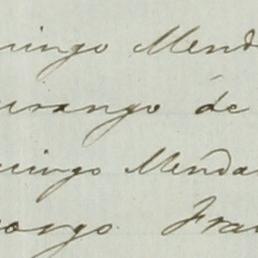 mingo Mend
urango de
mingo Menda
congo Fra